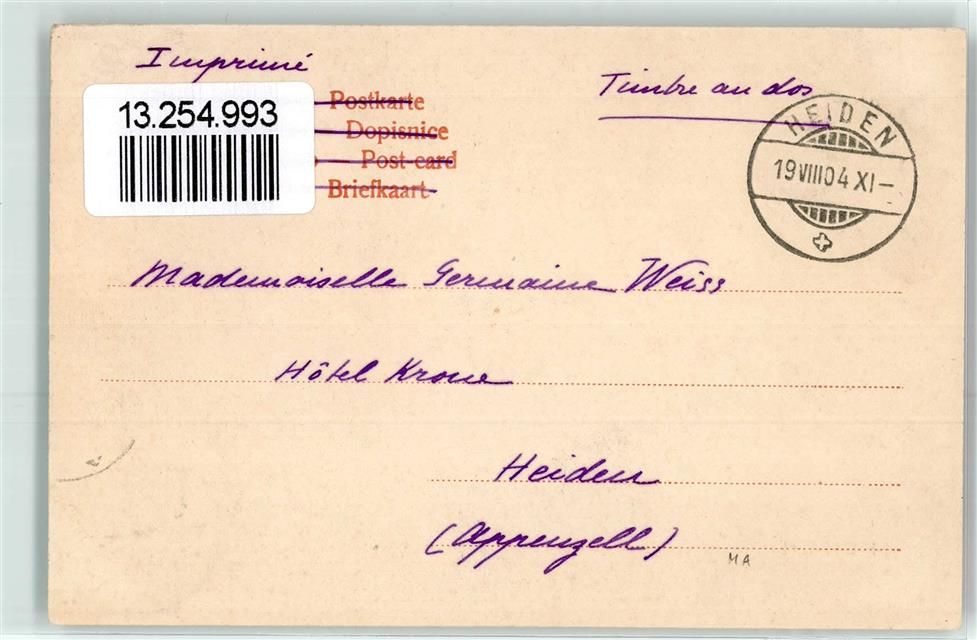 Imprimé
Timbre au dos
13.254.993
Postkarte
Dopisnice
Post-card
Briefkaart
HEIDEN
19 VIII 04 XI–
Mademoiselle Germaine Weiss
Hôtel Krone
Heiden
(Appenzell)
MA